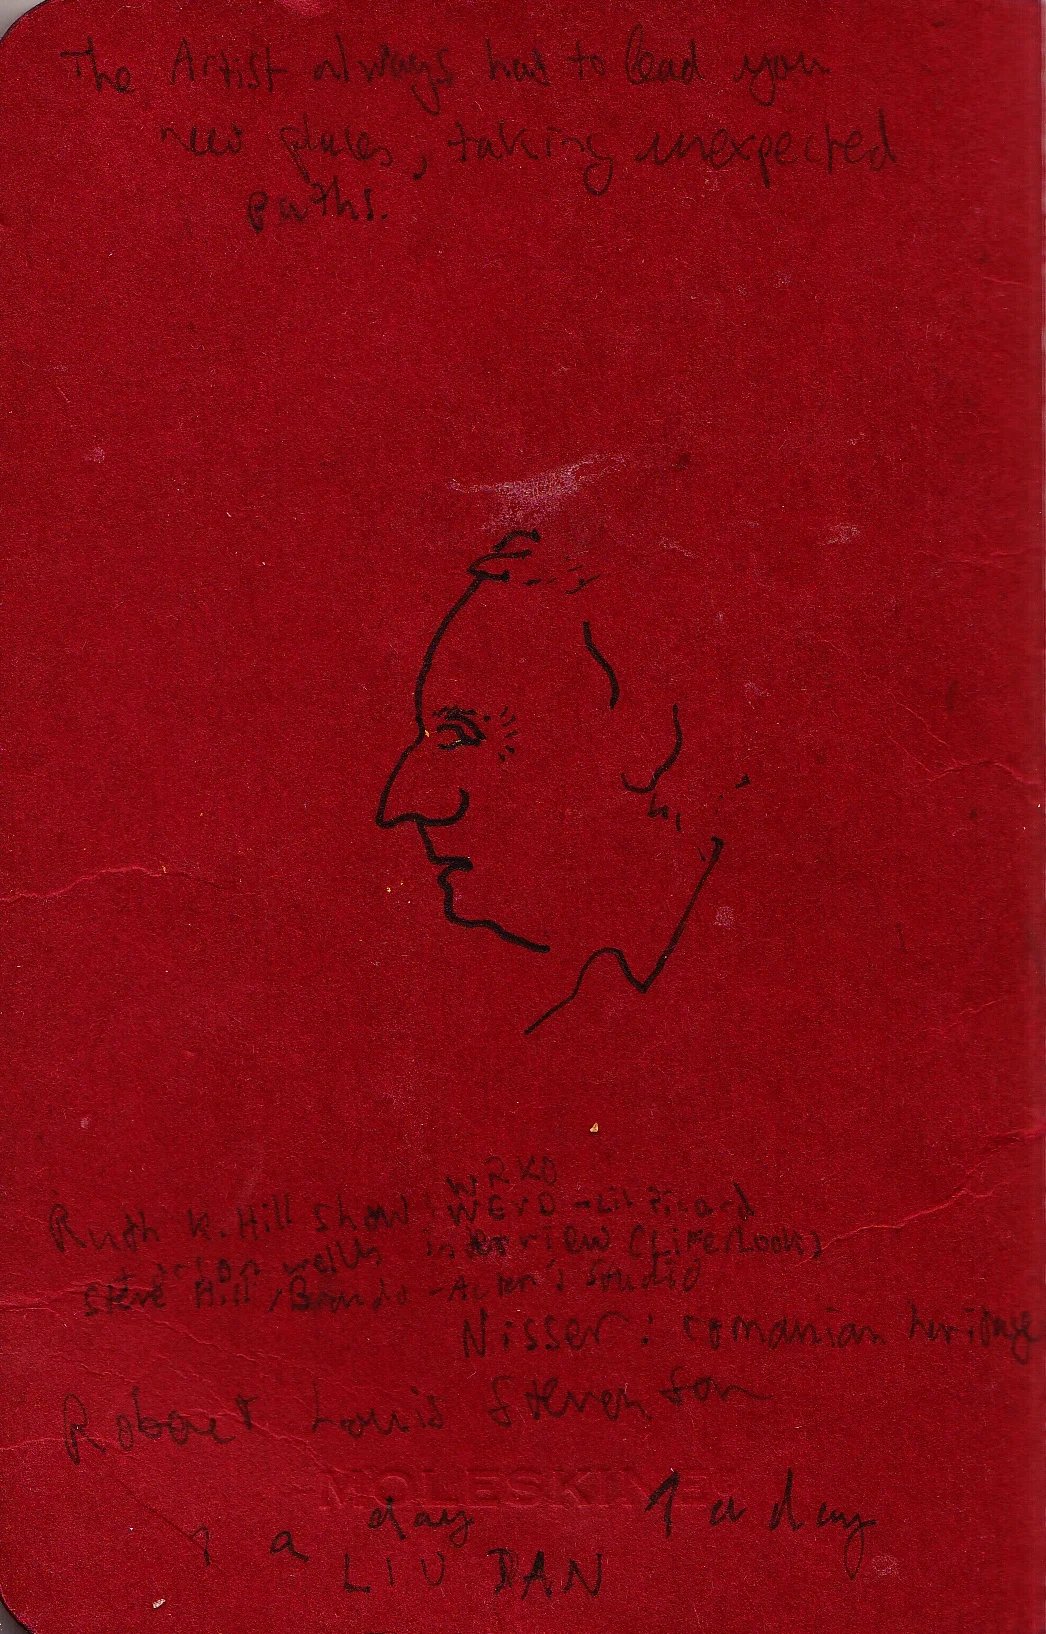 The Artist always has to lead you
new places, taking unexpected
paths.
WRKO
Ruth K. Hill show: WEVD - Lil Picard
orson welles interview (Life/Look)
Steve Hill / Brando - Actor's Studio
Nisser: romanian heritage
Robert Louis Stevenson
MOLESKINE
1 a day 1 a day
LIU DAN